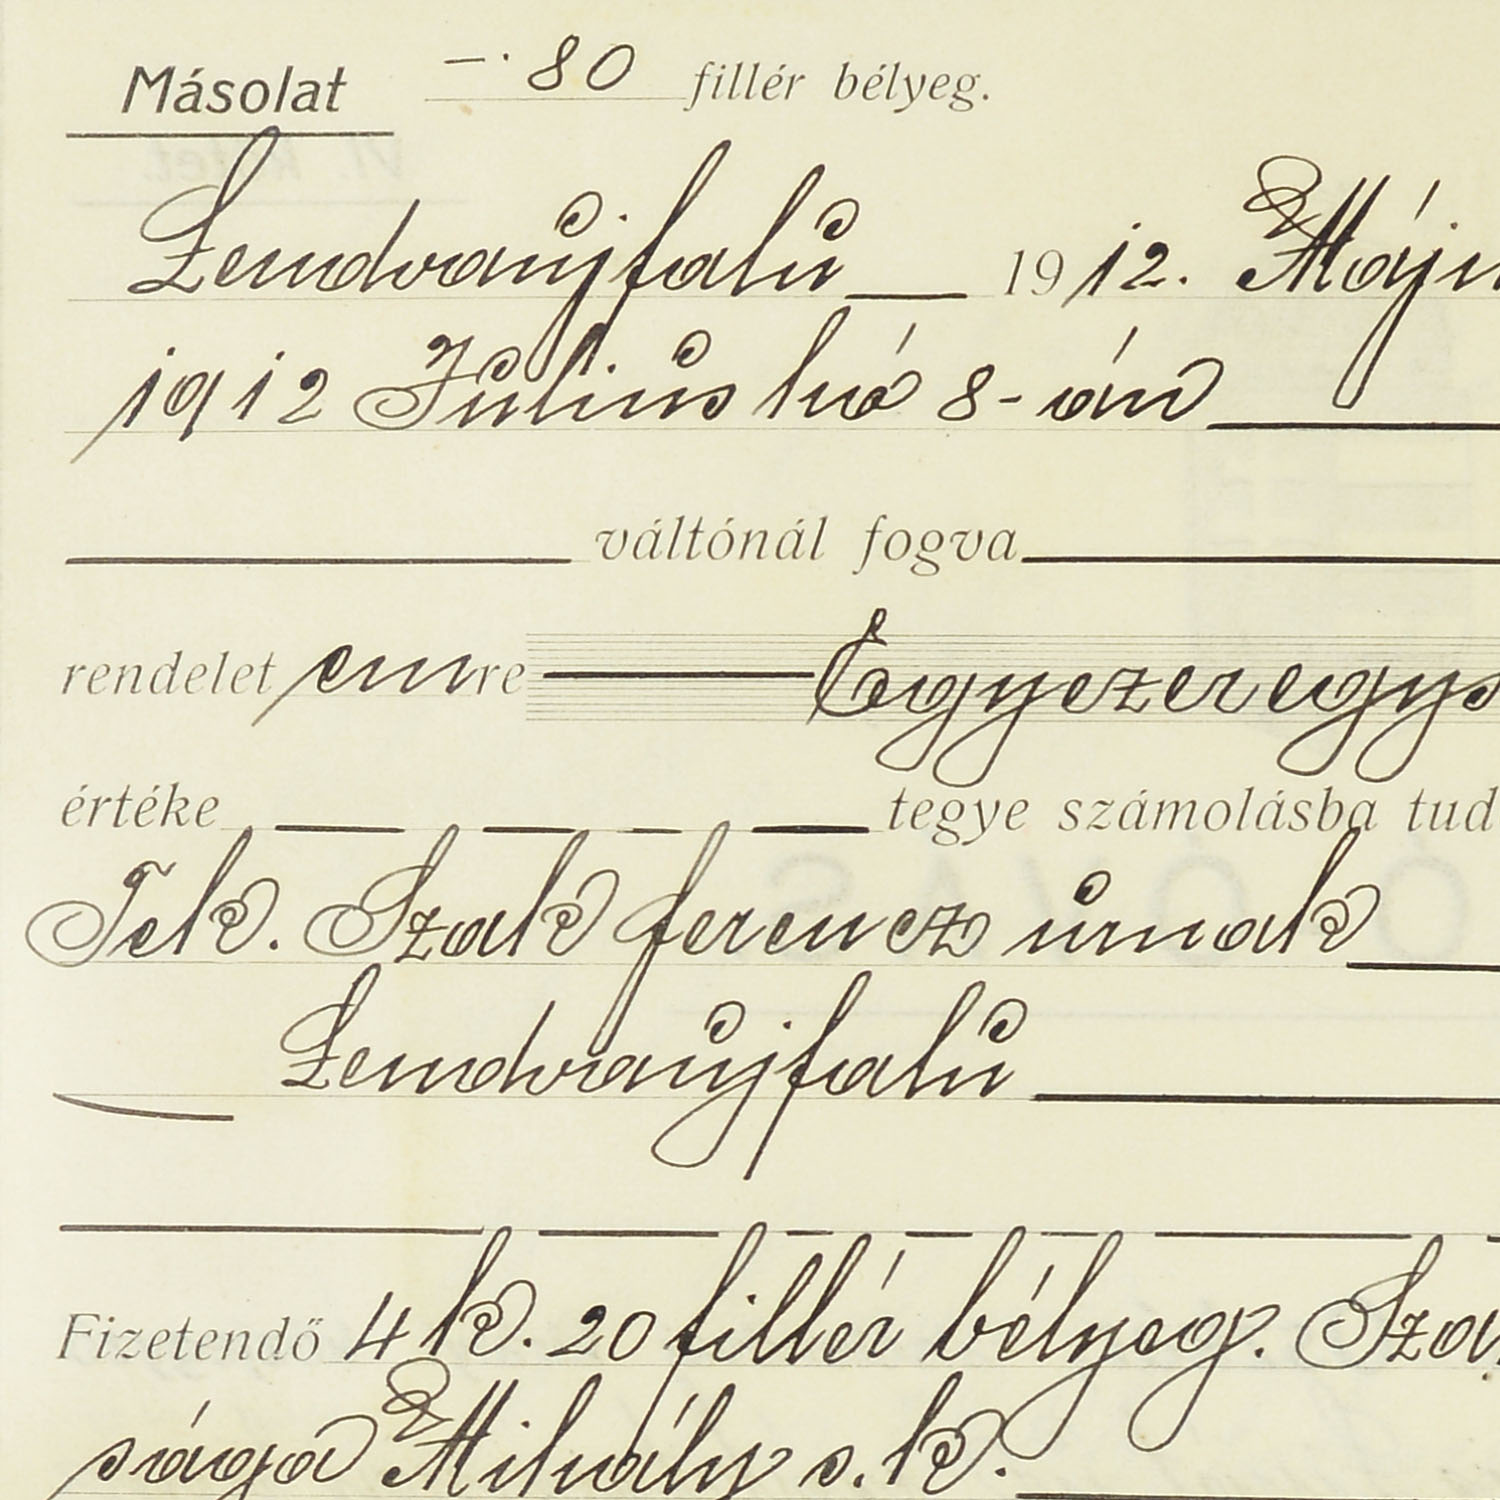 Másolat —·80 fillér bélyeg.
Lendvaujfalu 1912.
1912 Julius hó 8-án
váltónál fogva
rendelet emre
értéke tegye számolásba
Tek. Szak ferencz urnak
Lendvaujfalu
Fizetendő 4 k. 20 fillér bélyeg.
sága Mihály s. k.